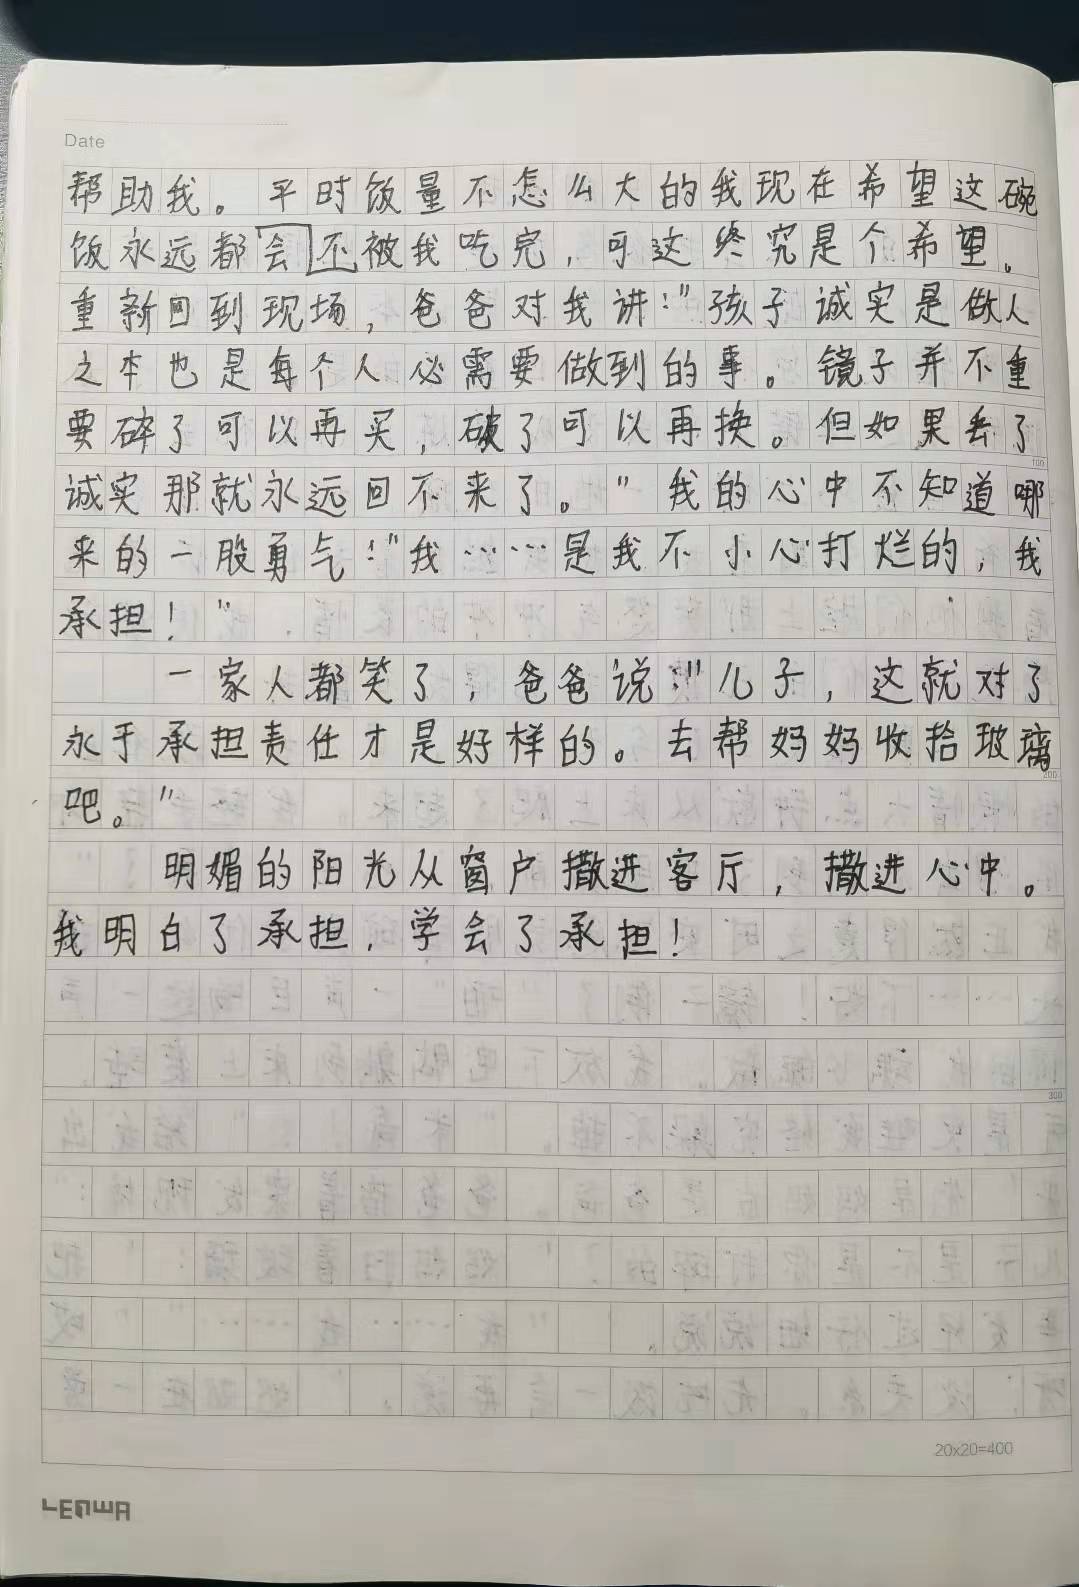 Date
帮助我。平时饭量不怎么大的我现在希望这碗
饭永远都会不被我吃完，可这终究是个希望。
重新回到现场，爸爸对我讲："孩子诚实是做人
之本也是每个人必需要做到的事。镜子并不重
要碎了可以再买，破了可以再换。但如果丢了
诚实那就永远回不来了。"我的心中不知道哪
来的一股勇气："我……是我不小心打烂的，我
承担！"
一家人都笑了，爸爸说："儿子，这就对了
永于承担责任才是好样的。去帮妈妈收拾玻璃
吧。"
明媚的阳光从窗户撒进客厅，撒进心中。
我明白了承担，学会了承担！
100
200
300
20x20=400
LENWA